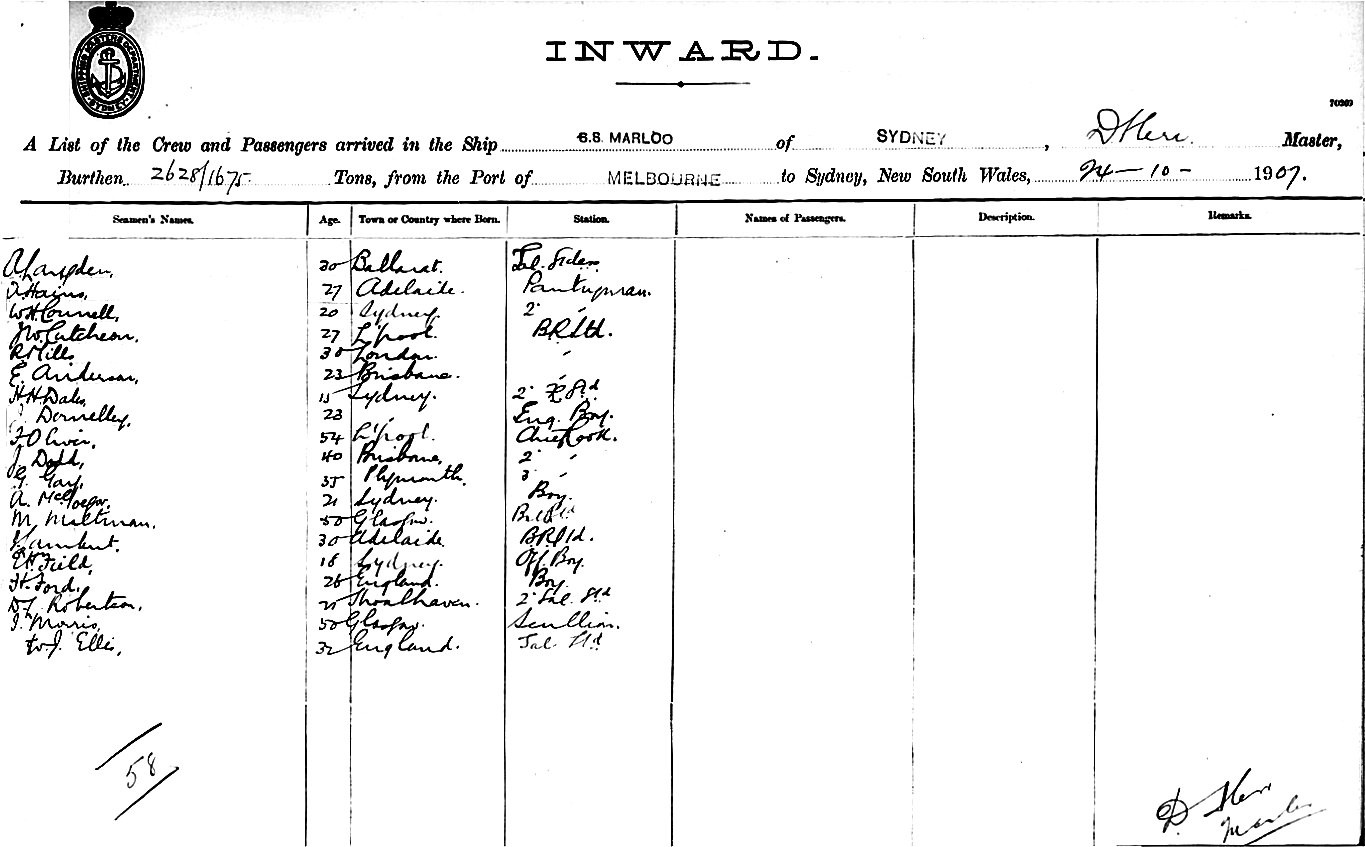 SHIPPING MASTERS DEPARTMENT SYDNEY
INWARD.
70269
A List of the Crew and Passengers arrived in the Ship S.S. MARLOO of SYDNEY, Master,
Burthen 2628/1675 Tons, from the Port of MELBOURNE to Sydney, New South Wales, 24-10-1907.
Seamen's Names. Age. Town or Country where Born. Station. Names of Passengers. Description. Remarks.
30 Ballarat.
27 Adelaide. Pantryman.
W.H. Connell, 20 Sydney. 2 "
27 L'pool.
R Mills 30 London. "
E. Anderson, 23 Brisbane. "
H.H. Dales, 15 Sydney. 2
Donnelley, 23 " Eng. Boy.
F Oliver, 54 L'pool. Chief Cook.
J. Dodd, 40 Brisbane, 2 "
G. Gay, 35 Plymouth. 3 "
A. McGregor, 21 Sydney. Boy.
M. Maltman. 50 Glasgow.
Lambert. 30 Adelaide.
E.H. Field, 18 Sydney. Off. Boy.
F. Ford. 26 England. Boy.
Robertson, Shoalhaven. 2 Sal. Std
J. Morris, 50 Glasgow. Scullion.
W.J. Ellis, 32 England. Sal. Std
58
D.
Master